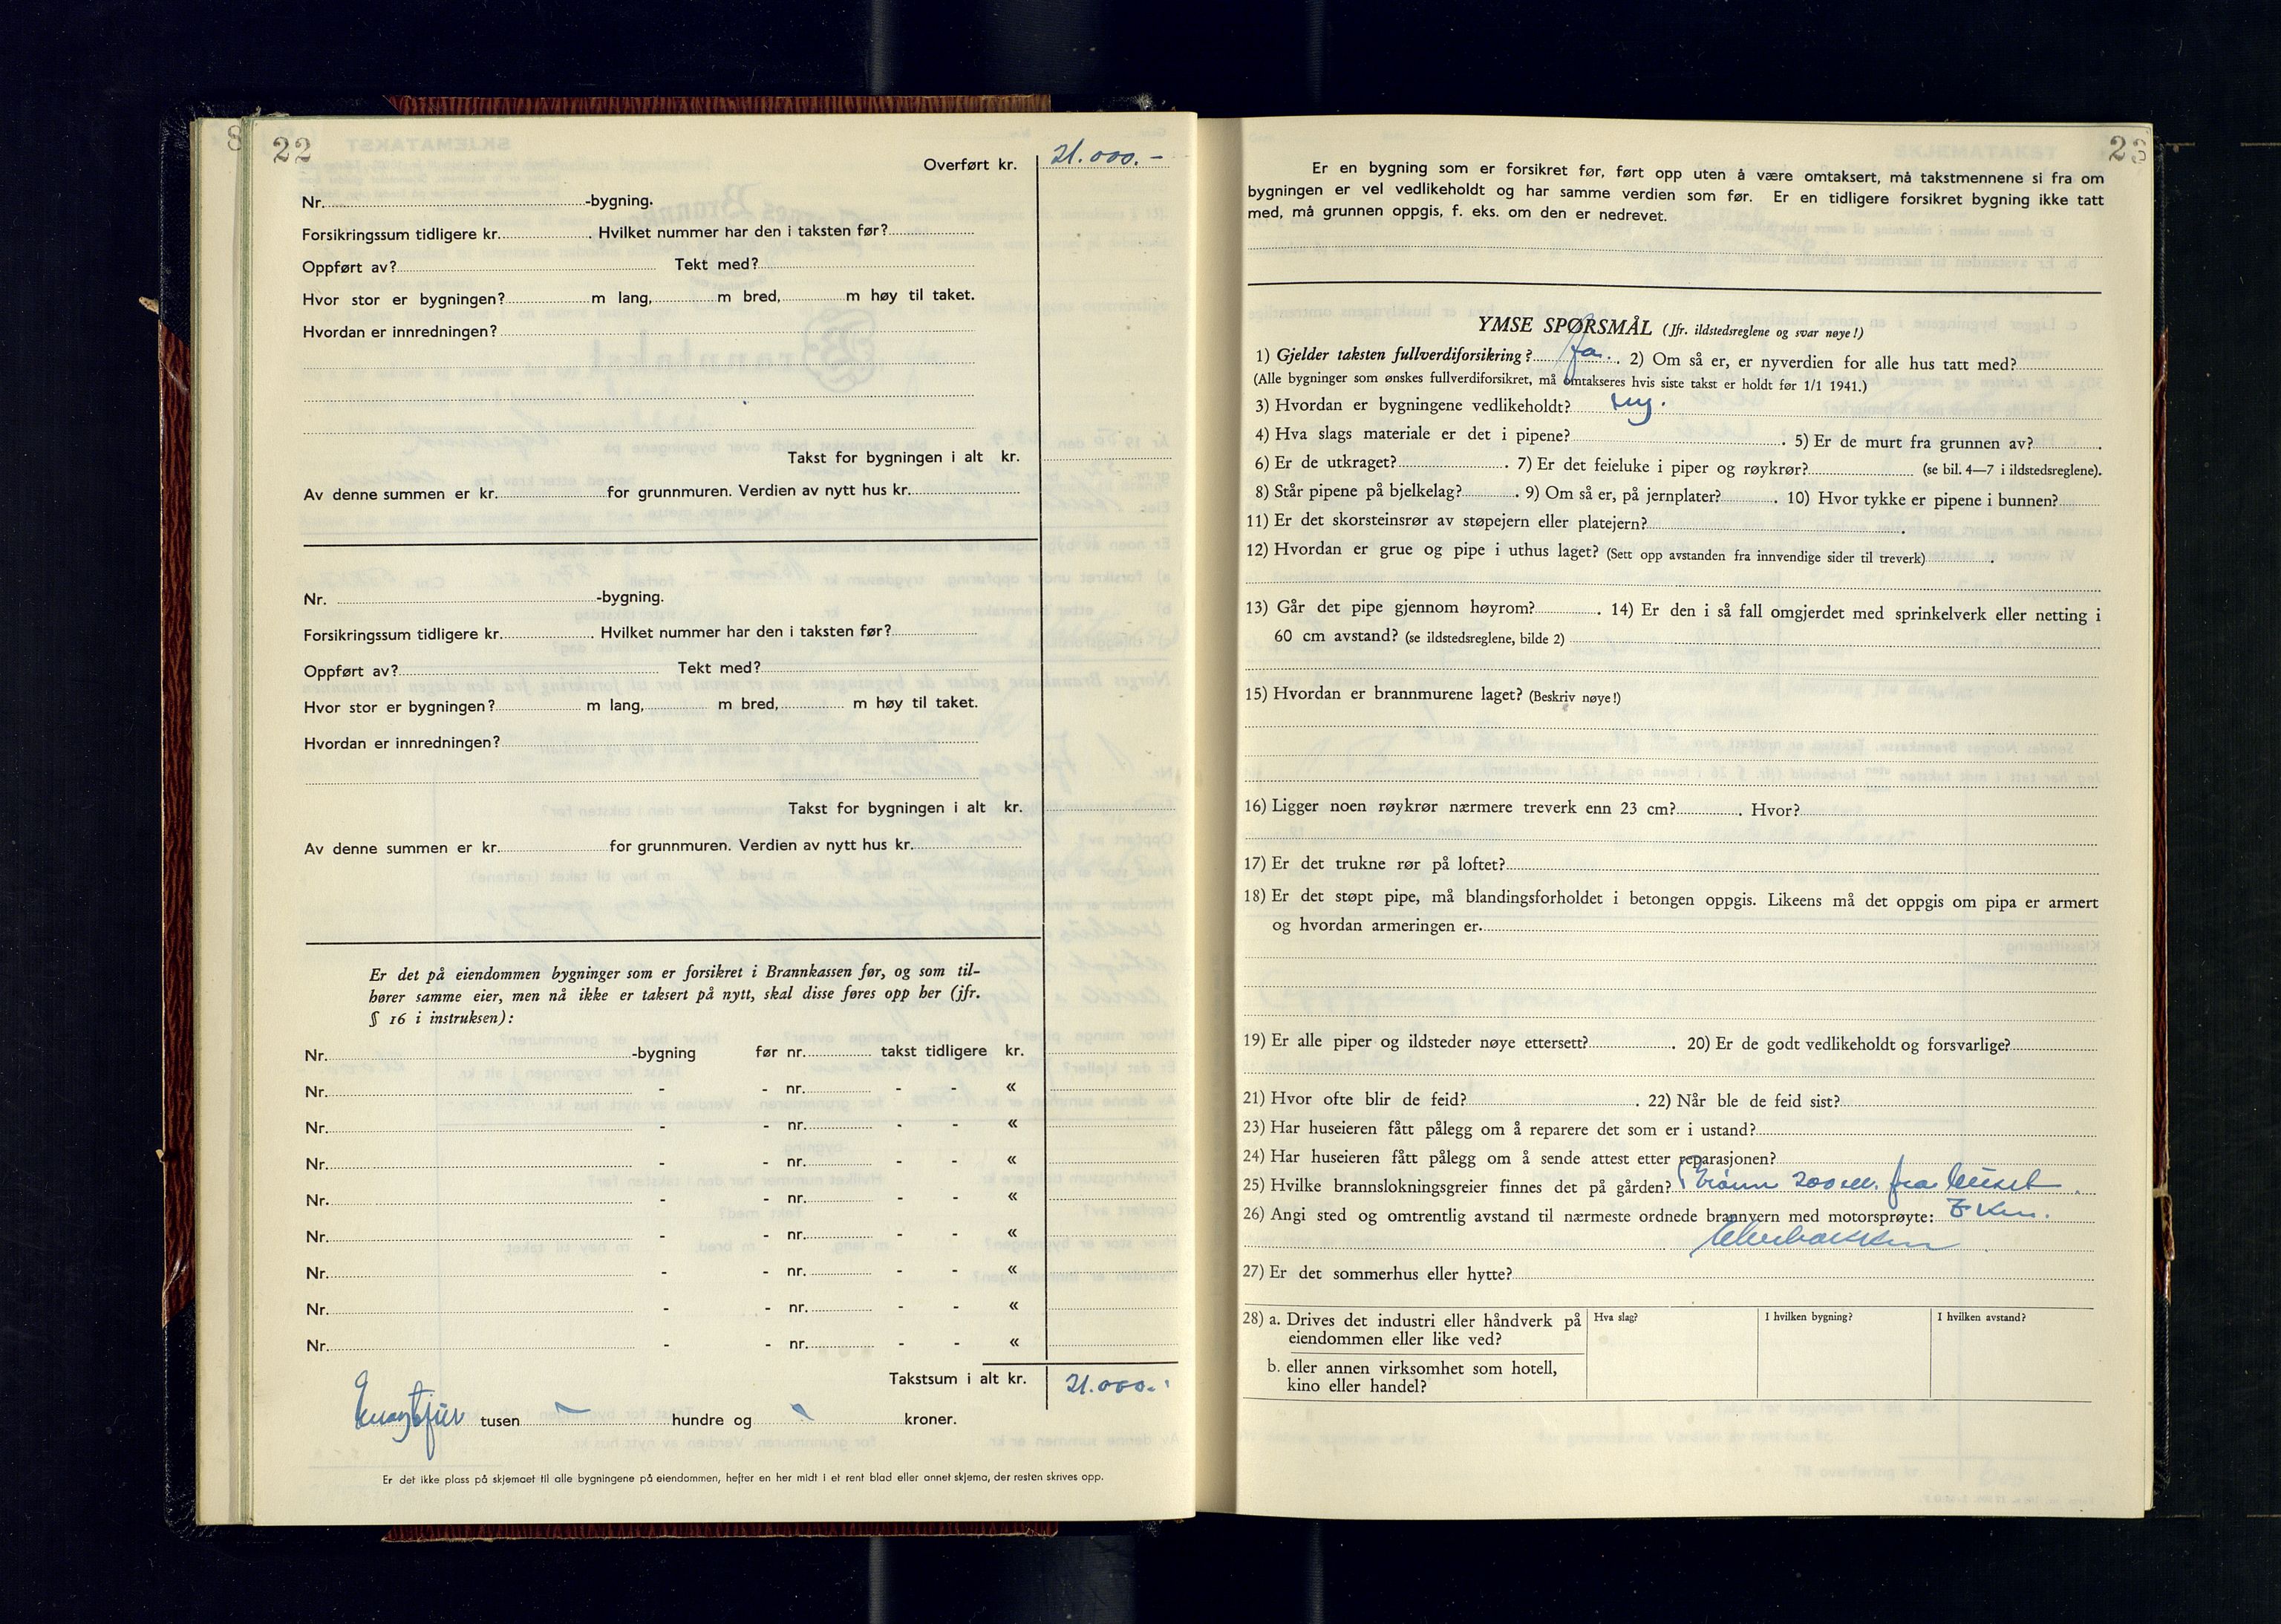 8
22
Overført kr. 21.000.-
Nr. -bygning.
Forsikringssum tidligere kr. . Hvilket nummer har den i taksten før?
Oppført av? Tekt med?
Hvor stor er bygningen? m lang, m bred, m høy til taket.
Hvordan er innredningen?
Takst for bygningen i alt kr.
Av denne summen er kr. for grunnmuren. Verdien av nytt hus kr.
Nr. -bygning.
Forsikringssum tidligere kr. . Hvilket nummer har den i taksten før?
Oppført av? Tekt med?
Hvor stor er bygningen? m lang, m bred, m høy til taket.
Hvordan er innredningen?
Takst for bygningen i alt kr.
Av denne summen er kr. for grunnmuren. Verdien av nytt hus kr.
Er det på eiendommen bygninger som er forsikret i Brannkassen før, og som til-
hører samme eier, men nå ikke er taksert på nytt, skal disse føres opp her (jfr.
§ 16 i instruksen):
Nr. -bygning før nr. takst tidligere kr.
Nr. - - nr. - - «
Nr. - - nr. - - «
Nr. - - nr. - - «
Nr. - - nr. - - «
Nr. - - nr. - - «
Nr. - - nr. - - «
Nr. - - nr. - - «
Nr. - - nr. - - «
Takstsum i alt kr. 21.000.-
tusen - hundre og - kroner.
Er det ikke plass på skjemaet til alle bygningene på eiendommen, hefter en her midt i et rent blad eller annet skjema, der resten skrives opp.
23
Er en bygning som er forsikret før, ført opp uten å være omtaksert, må takstmennene si fra om
bygningen er vel vedlikeholdt og har samme verdien som før. Er en tidligere forsikret bygning ikke tatt
med, må grunnen oppgis, f. eks. om den er nedrevet.
YMSE SPØRSMÅL (Jfr. ildstedsreglene og svar nøye!)
1) Gjelder taksten fullverdiforsikring? Ja. . 2) Om så er, er nyverdien for alle hus tatt med?
(Alle bygninger som ønskes fullverdiforsikret, må omtakseres hvis siste takst er holdt før 1/1 1941.)
3) Hvordan er bygningene vedlikeholdt? Ny.
4) Hva slags materiale er det i pipene? . 5) Er de murt fra grunnen av?
6) Er de utkraget? . 7) Er det feieluke i piper og røykrør? (se bil. 4—7 i ildstedsreglene).
8) Står pipene på bjelkelag? . 9) Om så er, på jernplater? . 10) Hvor tykke er pipene i bunnen?
11) Er det skorsteinsrør av støpejern eller platejern? .
12) Hvordan er grue og pipe i uthus laget? (Sett opp avstanden fra innvendige sider til treverk) .
13) Går det pipe gjennom høyrom? . 14) Er den i så fall omgjerdet med sprinkelverk eller netting i
60 cm avstand? (se ildstedsreglene, bilde 2)
15) Hvordan er brannmurene laget? (Beskriv nøye!)
16) Ligger noen røykrør nærmere treverk enn 23 cm? . Hvor?
17) Er det trukne rør på loftet?
18) Er det støpt pipe, må blandingsforholdet i betongen oppgis. Likeens må det oppgis om pipa er armert
og hvordan armeringen er.
19) Er alle piper og ildsteder nøye ettersett? . 20) Er de godt vedlikeholdt og forsvarlige?
21) Hvor ofte blir de feid? . 22) Når ble de feid sist?
23) Har huseieren fått pålegg om å reparere det som er i ustand?
24) Har huseieren fått pålegg om å sende attest etter reparasjonen?
25) Hvilke brannslokningsgreier finnes det på gården? Brønn 200 m. fra huset.
26) Angi sted og omtrentlig avstand til nærmeste ordnede brannvern med motorsprøyte: km.
27) Er det sommerhus eller hytte?
28) a. Drives det industri eller håndverk på
eiendommen eller like ved?
Hva slag? I hvilken bygning? I hvilken avstand?
b. eller annen virksomhet som hotell,
kino eller handel?